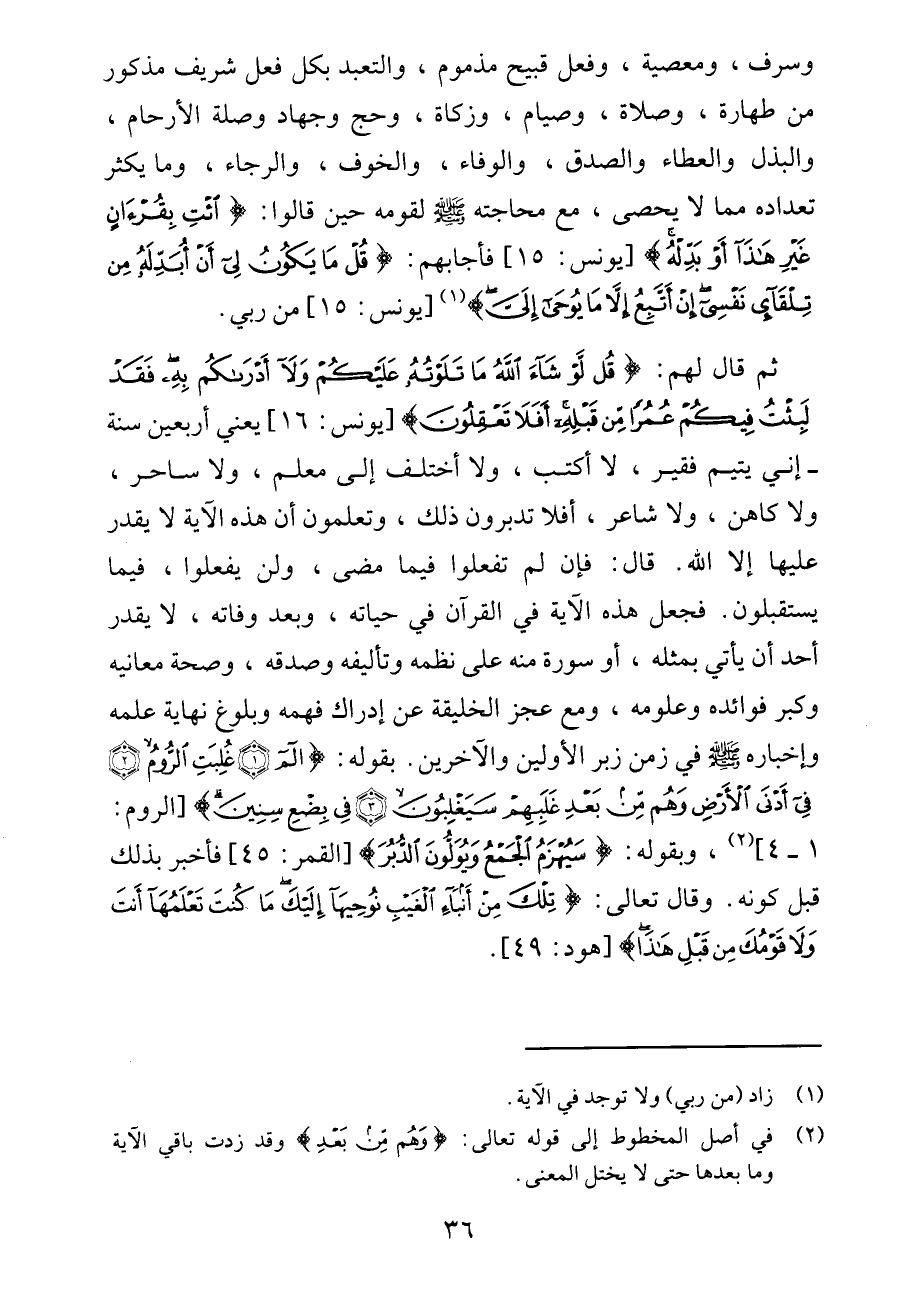 وسرف ، ومعصية ، وفعل قبيح مذموم ، والتعبد بكل فعل شريف مذكور
من طهارة ، وصلاة ، وصيام ، وزكاة ، وحج وجهاد وصلة الأرحام ،
والبذل والعطاء والصدق ، والوفاء ، والخوف ، والرجاء ، وما يكثر
تعداده مما لا يحصى ، مع محاجته ﷺ لقومه حين قالوا: ﴿ ٱئۡتِ بِقُرۡءَانٍ
غَيۡرِ هَٰذَآ أَوۡ بَدِّلۡهُۚ ﴾ [يونس: ١٥] فأجابهم: ﴿ قُلۡ مَا يَكُونُ لِيٓ أَنۡ أُبَدِّلَهُۥ مِن
تِلۡقَآيِٕ نَفۡسِيٓۖ إِنۡ أَتَّبِعُ إِلَّا مَا يُوحَىٰٓ إِلَيَّۖ ﴾(١) [يونس: ١٥] من ربي.
ثم قال لهم: ﴿ قُل لَّوۡ شَآءَ ٱللَّهُ مَا تَلَوۡتُهُۥ عَلَيۡكُمۡ وَلَآ أَدۡرَىٰكُم بِهِۦۖ فَقَدۡ
لَبِثۡتُ فِيكُمۡ عُمُرٗا مِّن قَبۡلِهِۦٓۚ أَفَلَا تَعۡقِلُونَ ﴾ [يونس: ١٦] يعني أربعين سنة
ـ إني يتيم فقير ، لا أكتب ، ولا أختلف إلى معلم ، ولا ساحر ،
ولا كاهن ، ولا شاعر ، أفلا تدبرون ذلك ، وتعلمون أن هذه الآية لا يقدر
عليها إلا الله. قال: فإن لم تفعلوا فيما مضى ، ولن يفعلوا ، فيما
يستقبلون. فجعل هذه الآية في القرآن في حياته ، وبعد وفاته ، لا يقدر
أحد أن يأتي بمثله ، أو سورة منه على نظمه وتأليفه وصدقه ، وصحة معانيه
وكبر فوائده وعلومه ، ومع عجز الخليقة عن إدراك فهمه وبلوغ نهاية علمه
وإخباره ﷺ في زمن زبر الأولين والآخرين. بقوله: ﴿ الٓمٓ ۝١ غُلِبَتِ ٱلرُّومُ ۝٢
فِيٓ أَدۡنَى ٱلۡأَرۡضِ وَهُم مِّنۢ بَعۡدِ غَلَبِهِمۡ سَيَغۡلِبُونَ ۝٣ فِي بِضۡعِ سِنِينَۗ ﴾ [الروم:
١ ـ ٤](٢) ، وبقوله: ﴿ سَيُهۡزَمُ ٱلۡجَمۡعُ وَيُوَلُّونَ ٱلدُّبُرَ ﴾ [القمر: ٤٥] فأخبر بذلك
قبل كونه. وقال تعالى: ﴿ تِلۡكَ مِنۡ أَنۢبَآءِ ٱلۡغَيۡبِ نُوحِيهَآ إِلَيۡكَۖ مَا كُنتَ تَعۡلَمُهَآ أَنتَ
وَلَا قَوۡمُكَ مِن قَبۡلِ هَٰذَاۖ ﴾ [هود: ٤٩].
(١) زاد (من ربي) ولا توجد في الآية.
(٢) في أصل المخطوط إلى قوله تعالى: ﴿ وَهُم مِّنۢ بَعۡدِ ﴾ وقد زدت باقي الآية
وما بعدها حتى لا يختل المعنى.
٣٦